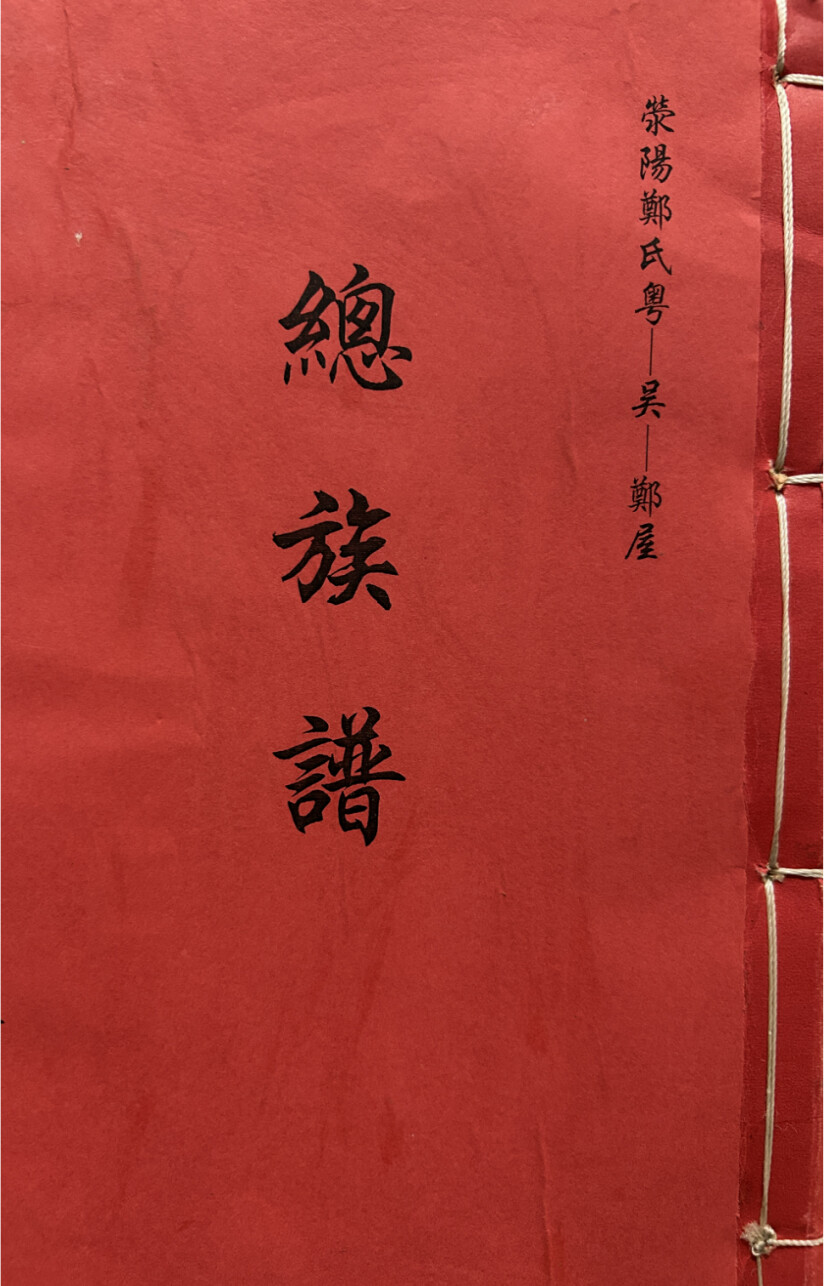 滎陽鄭氏粤—吴—鄭屋
總族譜